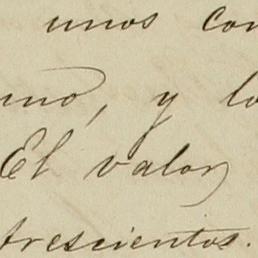 unos con
uno, y lo
El valor
trescientos.